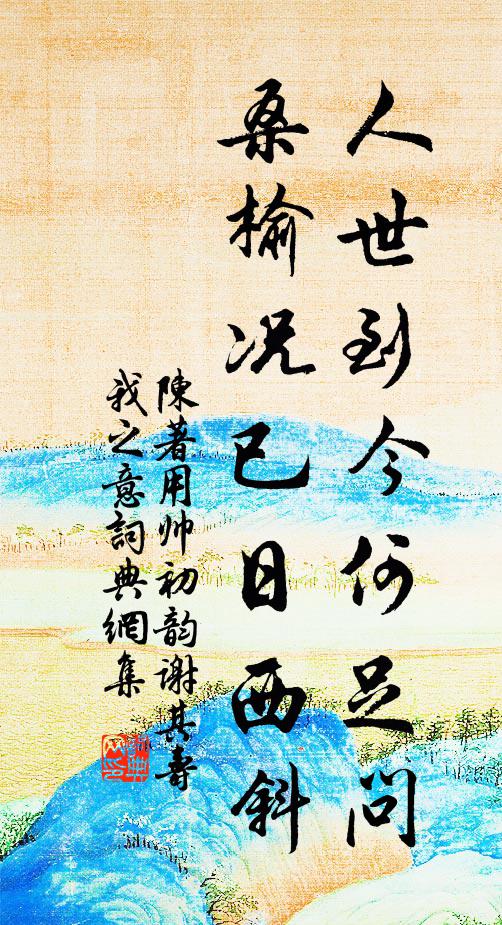 人世到今何足問
桑榆況已日西斜
陳著用帅初韵谢其壽
我之意詞典網集